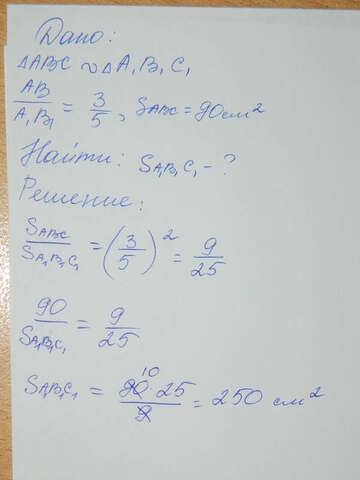 Дано:
△ABC ∾ △A₁B₁C₁
AB/A₁B₁ = 3/5, SABC = 90 см²
Найти: SA₁B₁C₁ - ?
Решение:
SABC/SA₁B₁C₁ = (3/5)² = 9/25
90/SA₁B₁C₁ = 9/25
10
SA₁B₁C₁ = 90·25/9 = 250 см²